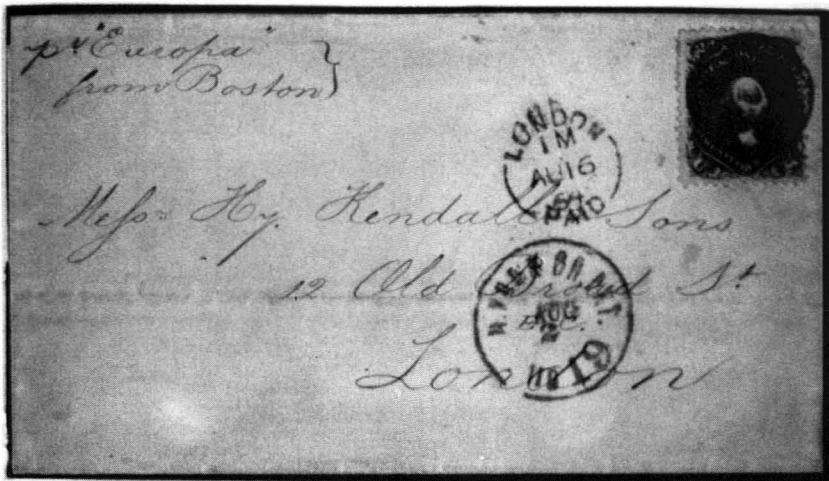 pr "Europa"
from Boston }
LONDON
1 M
AU 16
PAID
Messrs Hy. Kendall & Sons
12 Old Broad St
E.C.
London
AUG
2
19